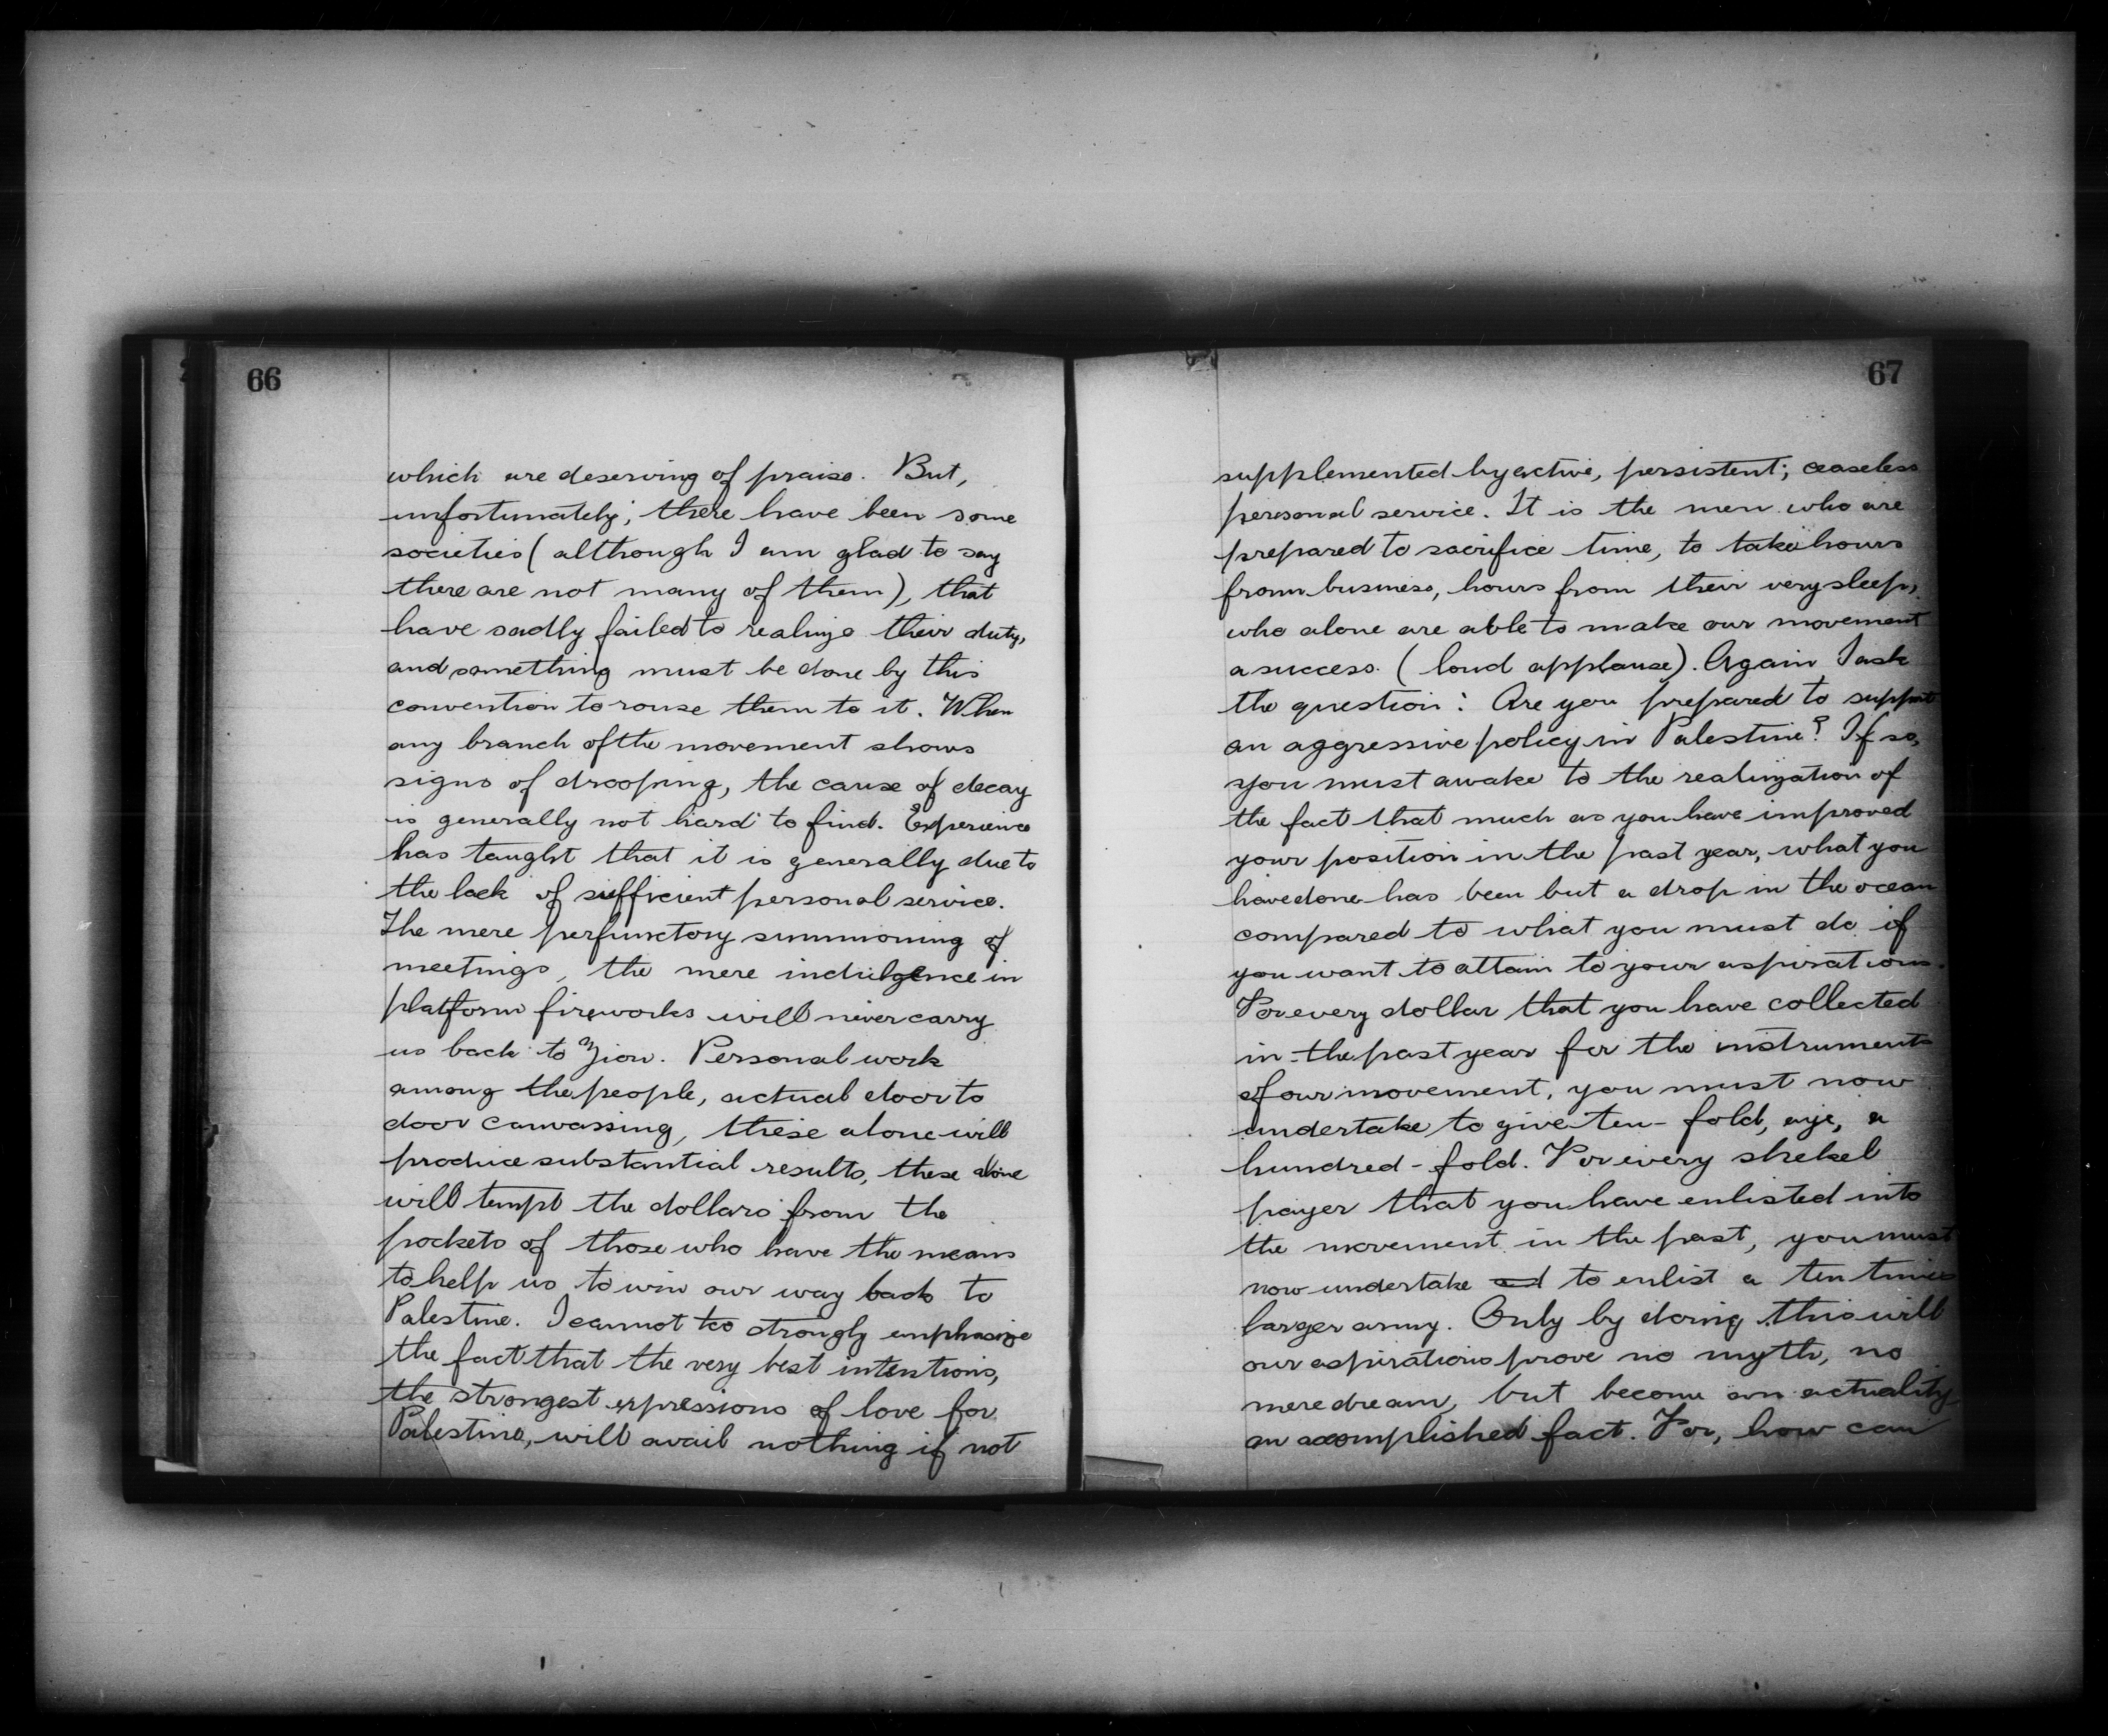 66
which are deserving of praise. But,
unfortunately, there have been some
societies (although I am glad to say
there are not many of them), that
have sadly failed to realize their duty,
and something must be done by this
convention to rouse them to it. When
any branch of the movement shows
signs of drooping, the cause of decay
is generally not hard to find. Experience
has taught that it is generally due to
the lack of sufficient personal service.
The mere perfunctory summoning of
meetings, the mere indulgence in
platform fireworks will never carry
us back to Zion. Personal work
among the people, actual door to
door canvassing, these alone will
produce substantial results, these alone
will tempt the dollars from the
pockets of those who have the means
to help us to win our way back to
Palestine. I cannot too strongly emphasize
the fact that the very best intentions,
the strongest expressions of love for
Palestine, will avail nothing if not
67
supplemented by active, persistent, ceaseless
personal service. It is the men who are
prepared to sacrifice time, to take hours
from business, hours from their very sleep,
who alone are able to make our movement
a success. (loud applause). Again I ask
the question: Are you prepared to support
an aggressive policy in Palestine? If so,
you must awake to the realization of
the fact that much as you have improved
your position in the past year, what you
have done has been but a drop in the ocean
compared to what you must do if
you want to attain to your aspirations.
For every dollar that you have collected
in the past year for the instruments
of our movement, you must now
undertake to give ten-fold, aye, a
hundred-fold. For every shekel
payer that you have enlisted into
the movement in the past, you must
now undertake and to enlist a ten times
larger army. Only by doing this will
our aspirations prove no myth, no
mere dream, but become an actuality
an accomplished fact. For, how can